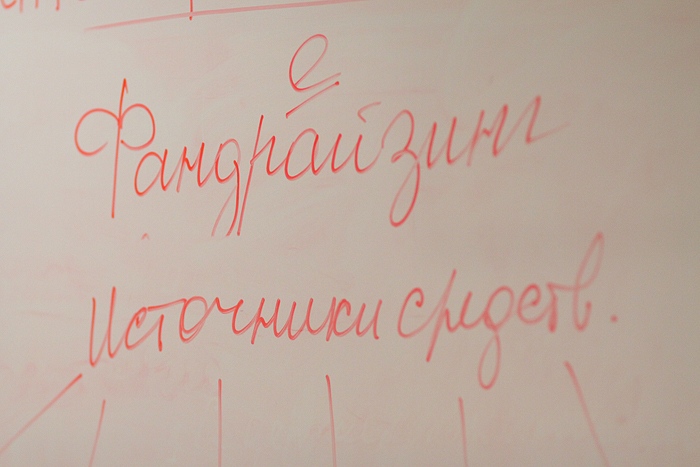 е
Фандрайзинг
Источники средств.